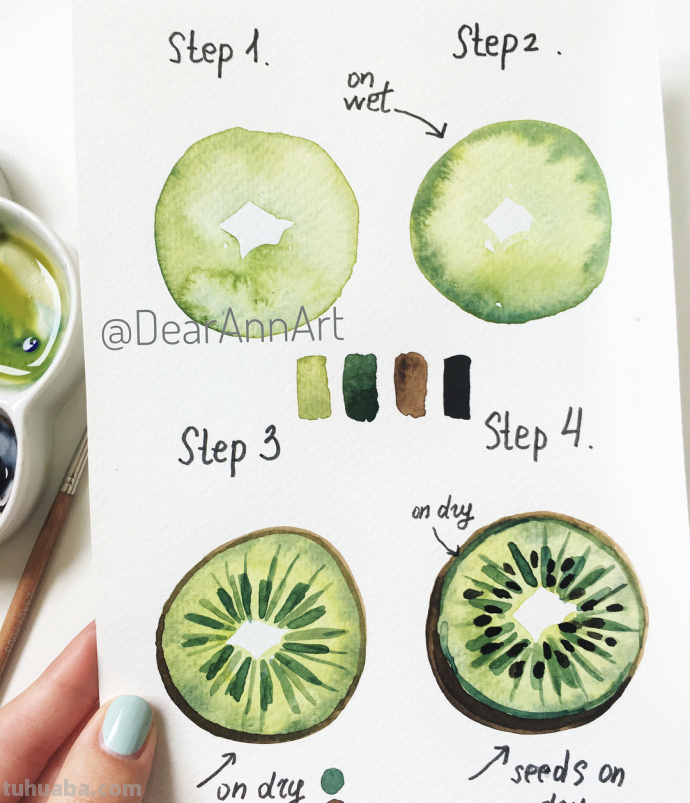 Step 1.
Step 2.
on
wet
@DearAnnArt
Step 3
Step 4.
on dry
on dry
seeds on
dry
tuhuaba.com